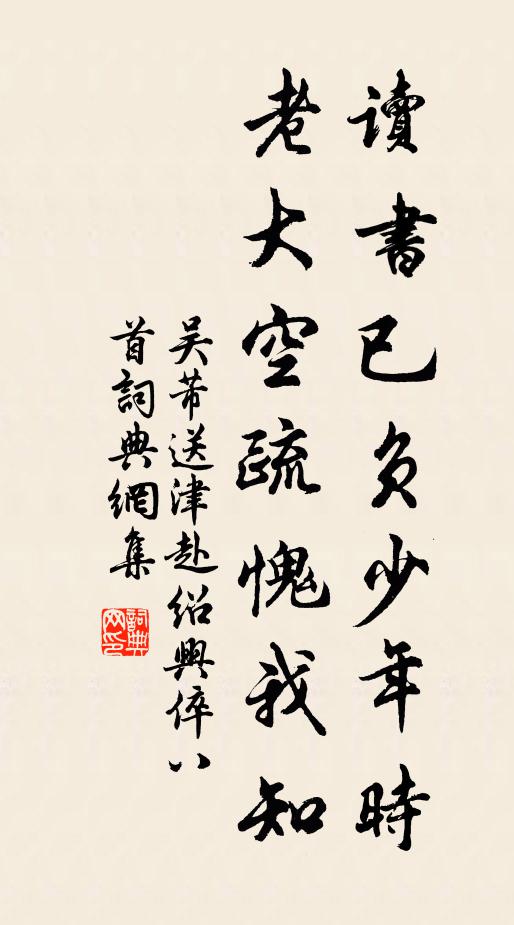 讀書已負少年時
老大空疏愧我知
吴芾送津赴紹興倅八
首詞典網集
詞典網印